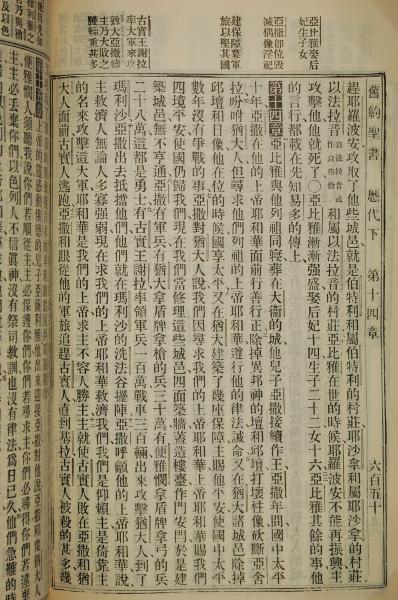 亞比雅娶后
妃生子女
亞撒卽位毀
滅偶像淫祀
建保障蒙軍
旅以堅其國
古實王謝拉
率大軍來攻
猶大亞撒禱
主乃大敗之
獲輜重甚多
舊約聖書 歷代下 第十四章 六百五十
趕耶羅波安攻取了他些城邑就是伯特利和屬伯特利的村莊耶沙拿和屬耶沙拿的村莊
以法拉音和屬以法拉音的村莊亞比雅在世的時候耶羅波安不能再振興主
攻擊他他就死了○亞比雅漸漸強盛娶后妃十四生子二十二女十六亞比雅其餘的事他
的言行都載在先知易多的傳上
第十四章亞比雅與他列祖同寢葬在大衞的城他兒子亞撒接續作王亞撒年間國中太平
十年亞撒在他的上帝耶和華面前行善行正除掉異邦神的壇和邱壇打壞柱像砍斷亞舍
拉吩咐猶大人但尋求他們列祖的上帝耶和華遵行他的律法誡命又在猶大諸城邑除掉
邱壇和日像他在位的時候國享太平又在猶大建築了幾座保障主賜他平安使國中太平
數年沒有爭戰的事亞撒對猶大人說我們因尋求我們的上帝耶和華上帝耶和華賜我們
四境平安使國仍歸我們現在我們當修理這些城邑四面築牆蓋造樓臺作門安閂於是建
築城邑無不亨通亞撒有軍兵有猶大拿盾牌拿槍的兵三十萬有便雅憫拿盾牌拿弓的兵
二十八萬這都是勇士有古實王謝拉率領軍兵一百萬戰車三百輛出來攻擊猶大人到了
瑪利沙亞撒出去抵擋他他們就在瑪利沙的洗法谷擺陣亞撒呼籲他的上帝耶和華說
主救濟人無論人多寡強弱現在求我們的上帝耶和華救濟我們我們是仰賴主是倚靠主
的名來攻擊這大軍耶和華是我們的上帝求主不容人勝主主就使古實人敗在亞撒和猶
大人面前古實人逃跑亞撒和跟從他的軍旅追趕古實人直到基拉古實人被殺的甚多幾